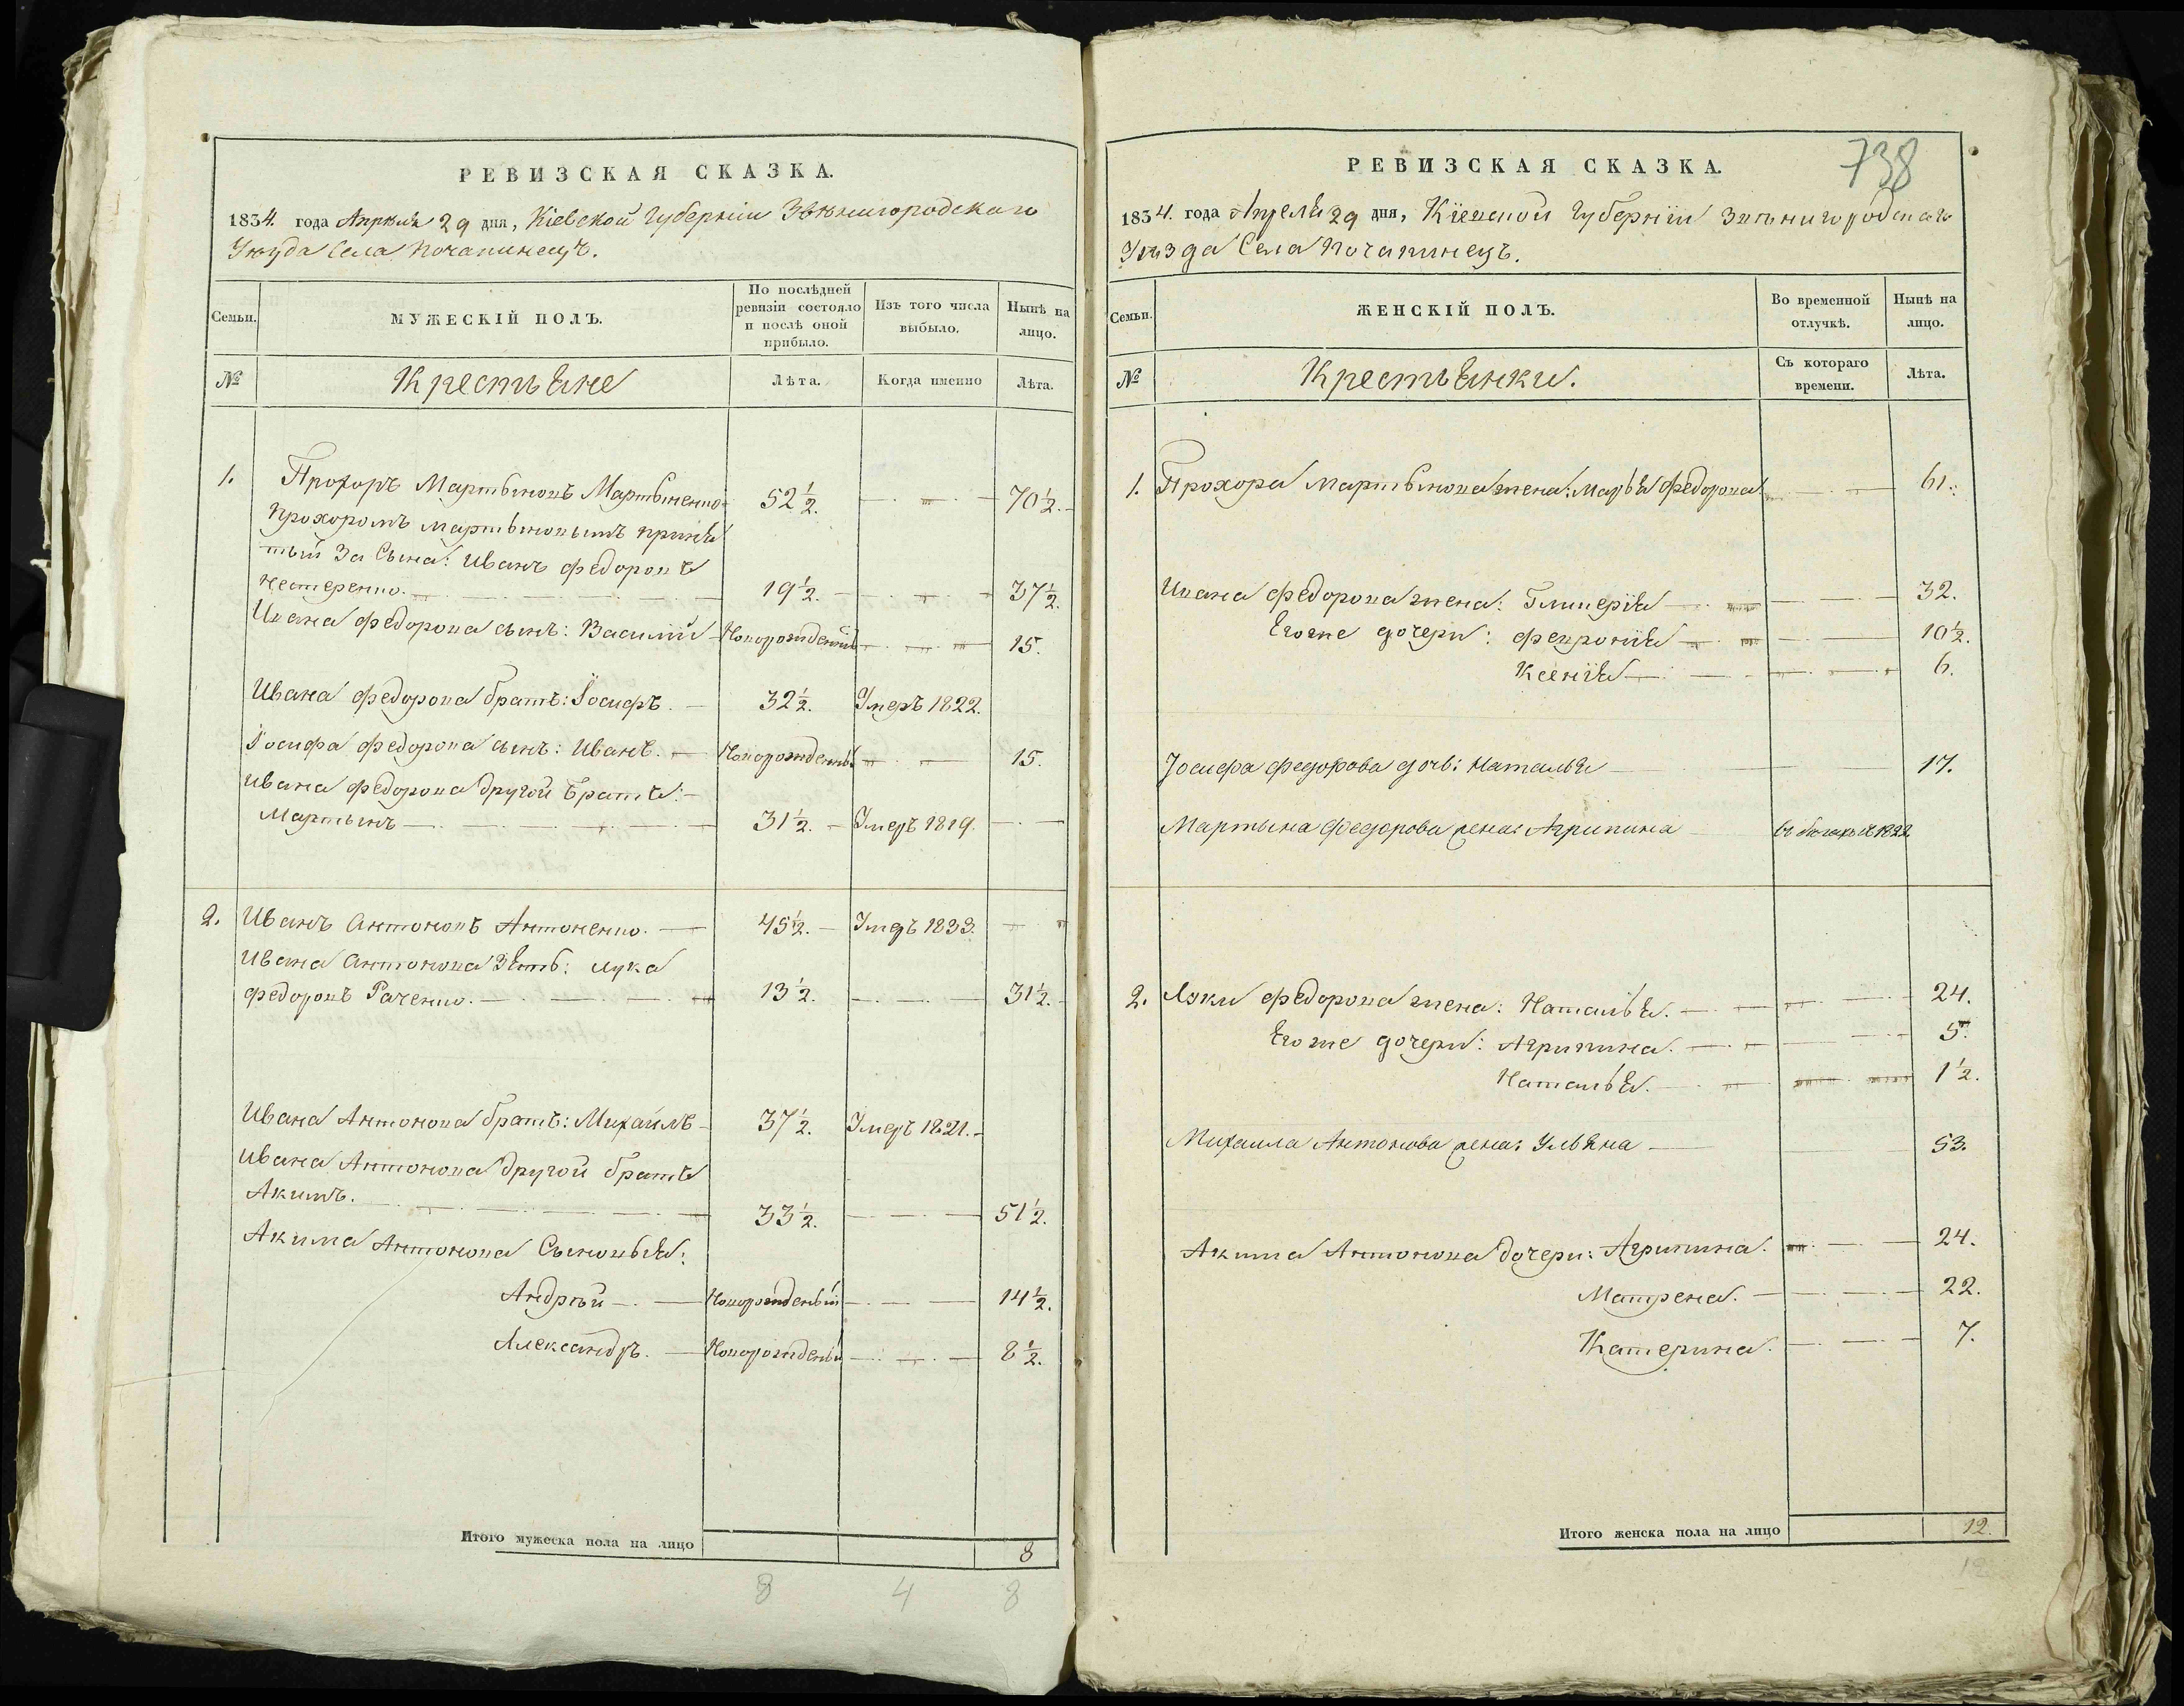 РЕВИЗСКАЯ СКАЗКА.
1834. года Апрѣля 29 дня, Кіевской Губерніи Звѣнигородскаго
Уѣзда Села Почапинецъ.
Семьи.
МУЖЕСКІЙ ПОЛЪ.
По послѣдней
ревизіи состояло
и послѣ оной
прибыло.
Изъ того числа
выбыло.
Нынѣ на
лицо.
№
Крестьяне
Лѣта.
Когда именно
Лѣта.
1. Прохоръ Мартыновъ Мартыненко 52½. 70½.
Прохоромъ Мартыновымъ приня
тый За Сына: Иванъ Федоровъ
Нестеренко. 19½. 37½.
Ивана Федорова сынъ: Василий Новорожденный 15.
Ивана Федорова братъ: Іосифъ. 32½. Умеръ 1822.
Іосифа Федорова сынъ: Иванъ. Новорожденный 15.
Ивана Федорова другой братъ:
Мартынъ 31½. Умеръ 1819.
2. Иванъ Антоновъ Антоненко. 45½. Умеръ 1833.
Ивана Антонова Зять: Лука
Федоровъ Раченко. 13½. 31½.
Ивана Антонова братъ: Михаилъ 37½. Умеръ 1821.
Ивана Антонова другой братъ
Акимъ. 33½. 51½.
Акима Антонова Сыновья:
Андрѣй Новорожденый 14½.
Александръ. Новорожденый 8½.
Итого мужеска пола на лицо 8
8 4 8
738
РЕВИЗСКАЯ СКАЗКА.
1834. года Апреля 29 дня, Кіевской Губерніи Звѣнигородскаго
Уѣзда Села Почапинецъ.
Семьи.
ЖЕНСКІЙ ПОЛЪ.
Во временной
отлучкѣ.
Нынѣ на
лицо.
№
Крестьянки.
Съ котораго
времени.
Лѣта.
1. Прохора Мартынова жена: Марья Федорова 61.
Ивана Федорова жена: Гликерія 32.
Егоже дочери: Февронія 10½.
Ксенія 6.
Іосифа Федорова дочь: Наталья 17.
Мартына Федорова жена: Агрипина 1822
2. Луки Федорова жена: Наталья. 24.
Егоже дочери: Агрипина. 5.
Наталья. 1½.
Михаила Антонова жена: Ульяна 53.
Акима Антонова дочери: Агрипина. 24.
Матрена. 22.
Катерина. 7.
Итого женска пола на лицо 12.
12